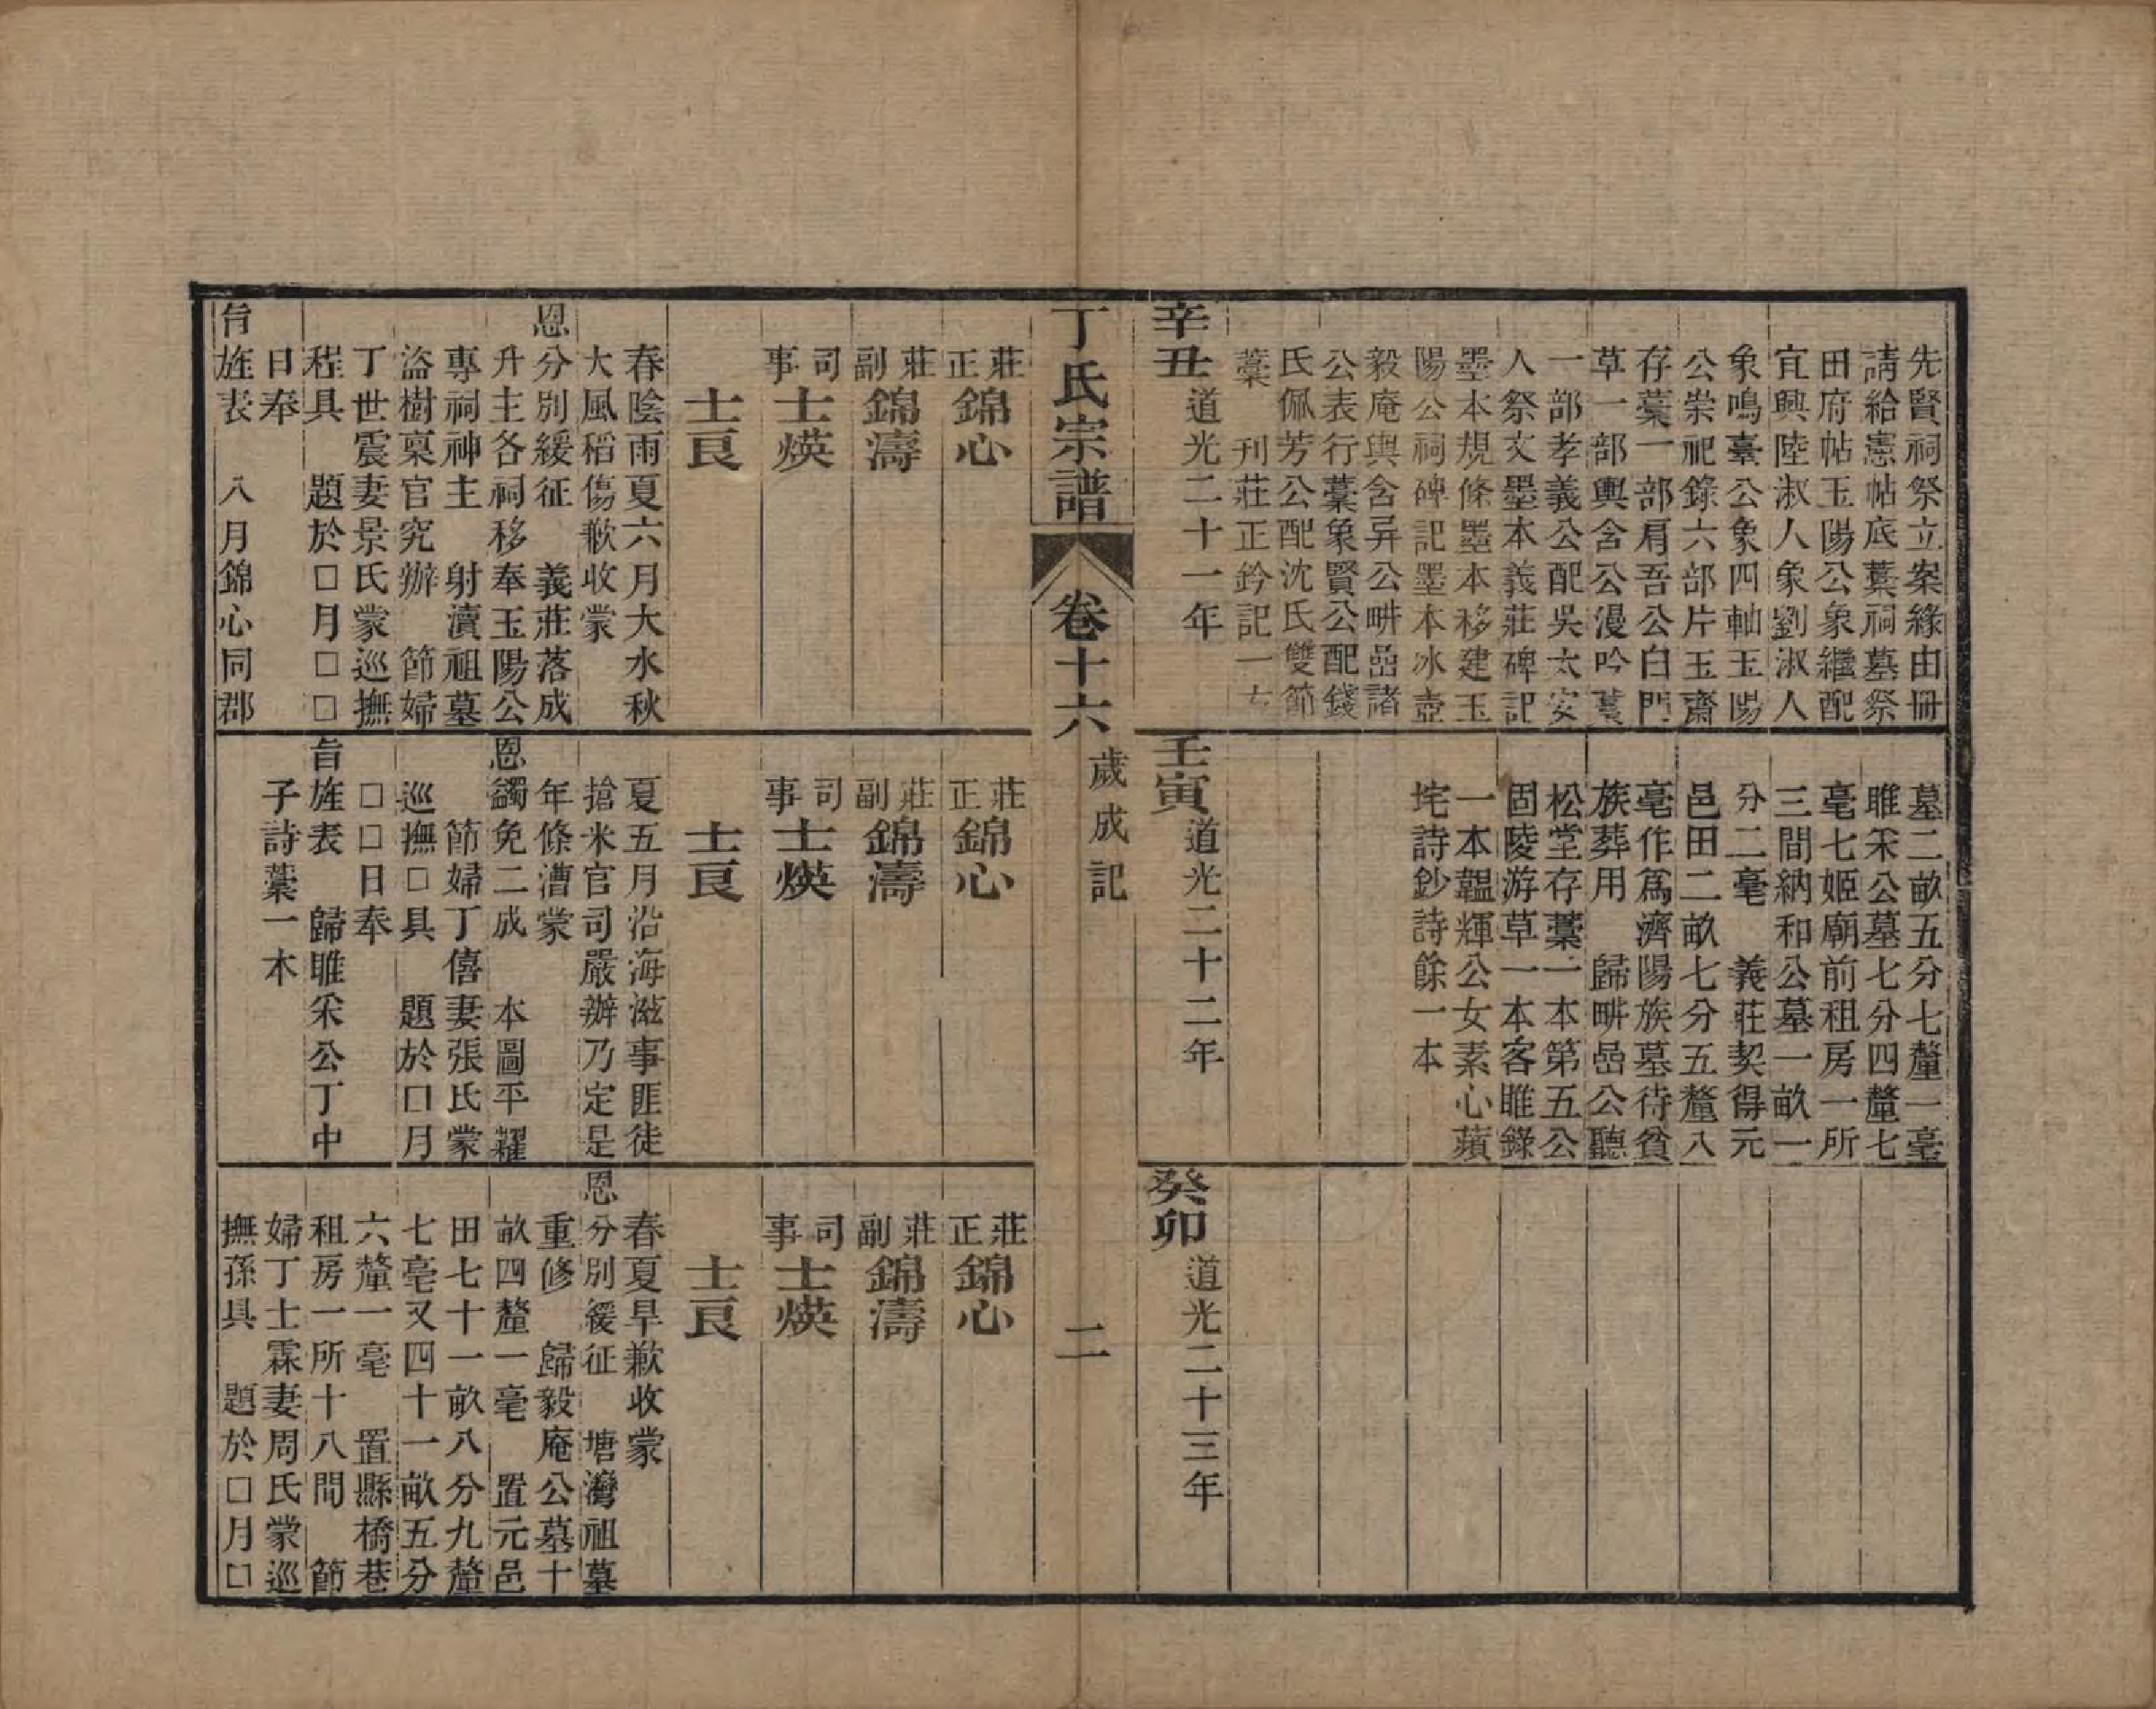 先賢祠祭立案緣由冊
請給憲帖底藁祠墓祭
田府帖玉陽公象繼配
宜興陸淑人象劉淑人
象鳴臺公象四軸玉陽
公崇祀錄六部片玉齋
存藁一部肩吾公白門
草一部輿含公漫吟藁
一部孝義公配吳太安
人祭文墨本義莊碑記
墨本規條墨本移建玉
陽公祠碑記墨本冰壺
毅庵輿含昇公畊嵒諸
公表行藁象賢公配錢
氏佩芳公配沈氏雙節
藁　刊莊正鈐記一方
墓二畝五分七釐一毫
雎采公墓七分四釐七
毫七姬廟前租房一所
三間納和公墓一畝一
分二毫　義莊契得元
邑田二畝七分五釐八
毫作爲濟陽族墓待貧
族葬用　歸畊嵒公聽
松堂存藁一本第五公
固陵游草一本客雎錄
一本韞輝公女素心蘋
垞詩鈔詩餘一本
辛丑道光二十一年
壬寅道光二十二年
癸卯道光二十三年
丁氏宗譜
卷十六
歲成記
二
莊正　錦心
莊副　錦濤
司事　士煐
士良
春陰雨夏六月大水秋
大風稻傷歉收蒙
恩分別緩征　義莊落成
升主各祠移奉玉陽公
專祠神主　射瀆祖墓
盜樹稟官究辦　節婦
丁世震妻景氏蒙巡撫
程具　題於□月□□
日奉
旨旌表　八月錦心同郡
莊正　錦心
莊副　錦濤
司事　士煐
士良
夏五月沿海滋事匪徒
搶米官司嚴辦乃定是
年條漕蒙
恩蠲免二成　本圖平糶
節婦丁僖妻張氏蒙
巡撫□具　題於□月
□□日奉
旨旌表　歸雎采公丁中
子詩藁一本
莊正　錦心
莊副　錦濤
司事　士煐
士良
春夏旱歉收蒙
恩分別緩征　塘灣祖墓
重修　歸毅庵公墓十
畝四釐一毫　置元邑
田七十一畝八分九釐
七毫又四十一畝五分
六釐一毫　置縣橋巷
租房一所十八間　節
婦丁士霖妻周氏蒙巡
撫孫具　題於□月□